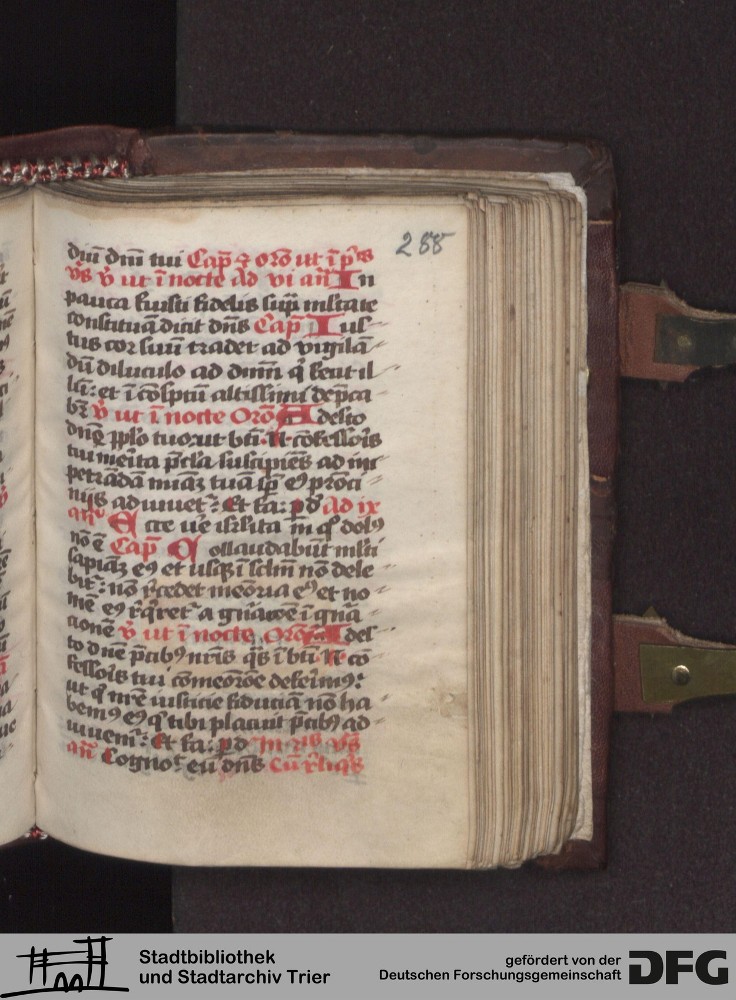 288
diū dn̄i tui Cap̄ ⁊ oro ut ī p̄is
v̄s v̇ ut ī nocte Ad vi an̄ In
pauca fuisti fidelis sup̄ ml̄ta te
constituā dicit dn̄s Cap̄ Ius
tus cor suū tradet ad vigilā
dū diluculo ad dn̄m q̄ fecit il
lū: et ī cōspectu altissimi dep̄ca
bꝫ v̇ ut ī nocte Orō Adesto
dn̄e pp̄lo tuo ut bti N confessoris
tui merita p̄cl̄a suscipiēs ad im
petrādā mīaꝫ tuā sp̄ eiꝰ p̄roci
niis adiuuet᷑: Et fa: p̄ d Ad ix
an̄ Ecce ve isr̄lita ī q̄ dolꝰ
nō ē Cap̄ Collaudabūt ml̄ti
sapiāꝫ eiꝰ et usqꝫ ī scl̄m nō dele
bit᷑: nō r̄cedet meōria eiꝰ et no
mē eiꝰ r̄q̄ret᷑ a gn̄atōe ī gn̄a
cionē v̇ ut ī nocte Orō Ades
to dn̄e p̄cibꝰ nr̄is q̄s ī bti N cō
fessoris tui cōmeōroē deferimꝰ:
ut q̄ nr̄e iusticie fiduciā nō ha
bemꝰ eiꝰ q̄ tibi placuit p̄cibꝰ ad
iuuem᷑: Et fa: p̄ d In ii vs
an̄ Cognoᵗ eū dn̄s Cū rl̄iqs
Stadtbibliothek
und Stadtarchiv Trier
gefördert von der
Deutschen Forschungsgemeinschaft
DFG